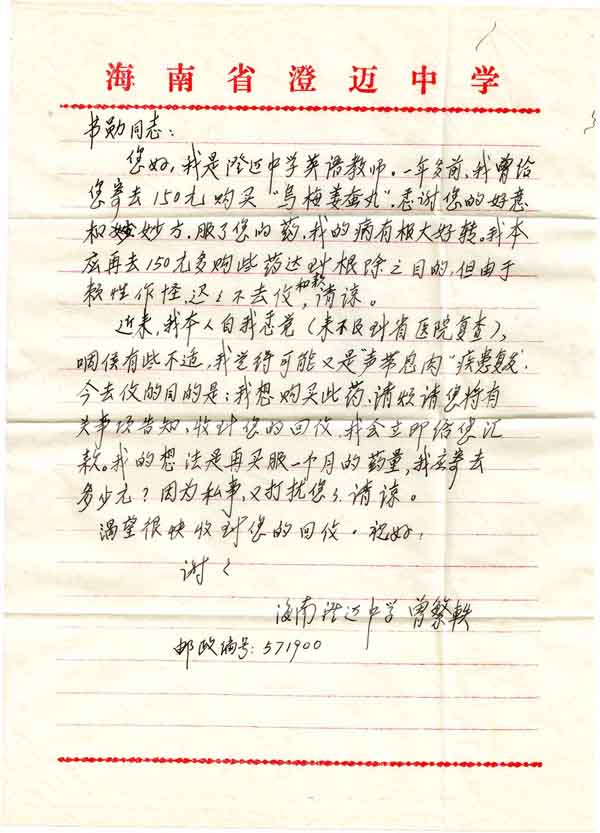 海南省澄迈中学
书勋同志：
您好，我是澄迈中学英语教师。一年多前，我曾给
您寄去150元购买"乌梅姜蚕丸"，感谢您的好意
和妙方，服了您的药，我的病有极大好转。我本
应再去150元多购些药达到根除之目的，但由于
赖性作怪，迟迟不去信和款，请谅。
近来，我本人自我感觉（未不及到省医院复查），
咽侯有些不适，我觉得可能又是"声带息肉"疾患复发，
今去信的目的是：我想购买此药，请烦请您将有
关事项告知，收到您的回信，我会立即给您汇
款。我的想法是再买服一个月的药量，我应寄去
多少元？因为私事，又打扰您了，请谅。
渴望很快收到您的回信。祝好！
谢谢
海南澄迈中学 曾繁轶
邮政编号：571900